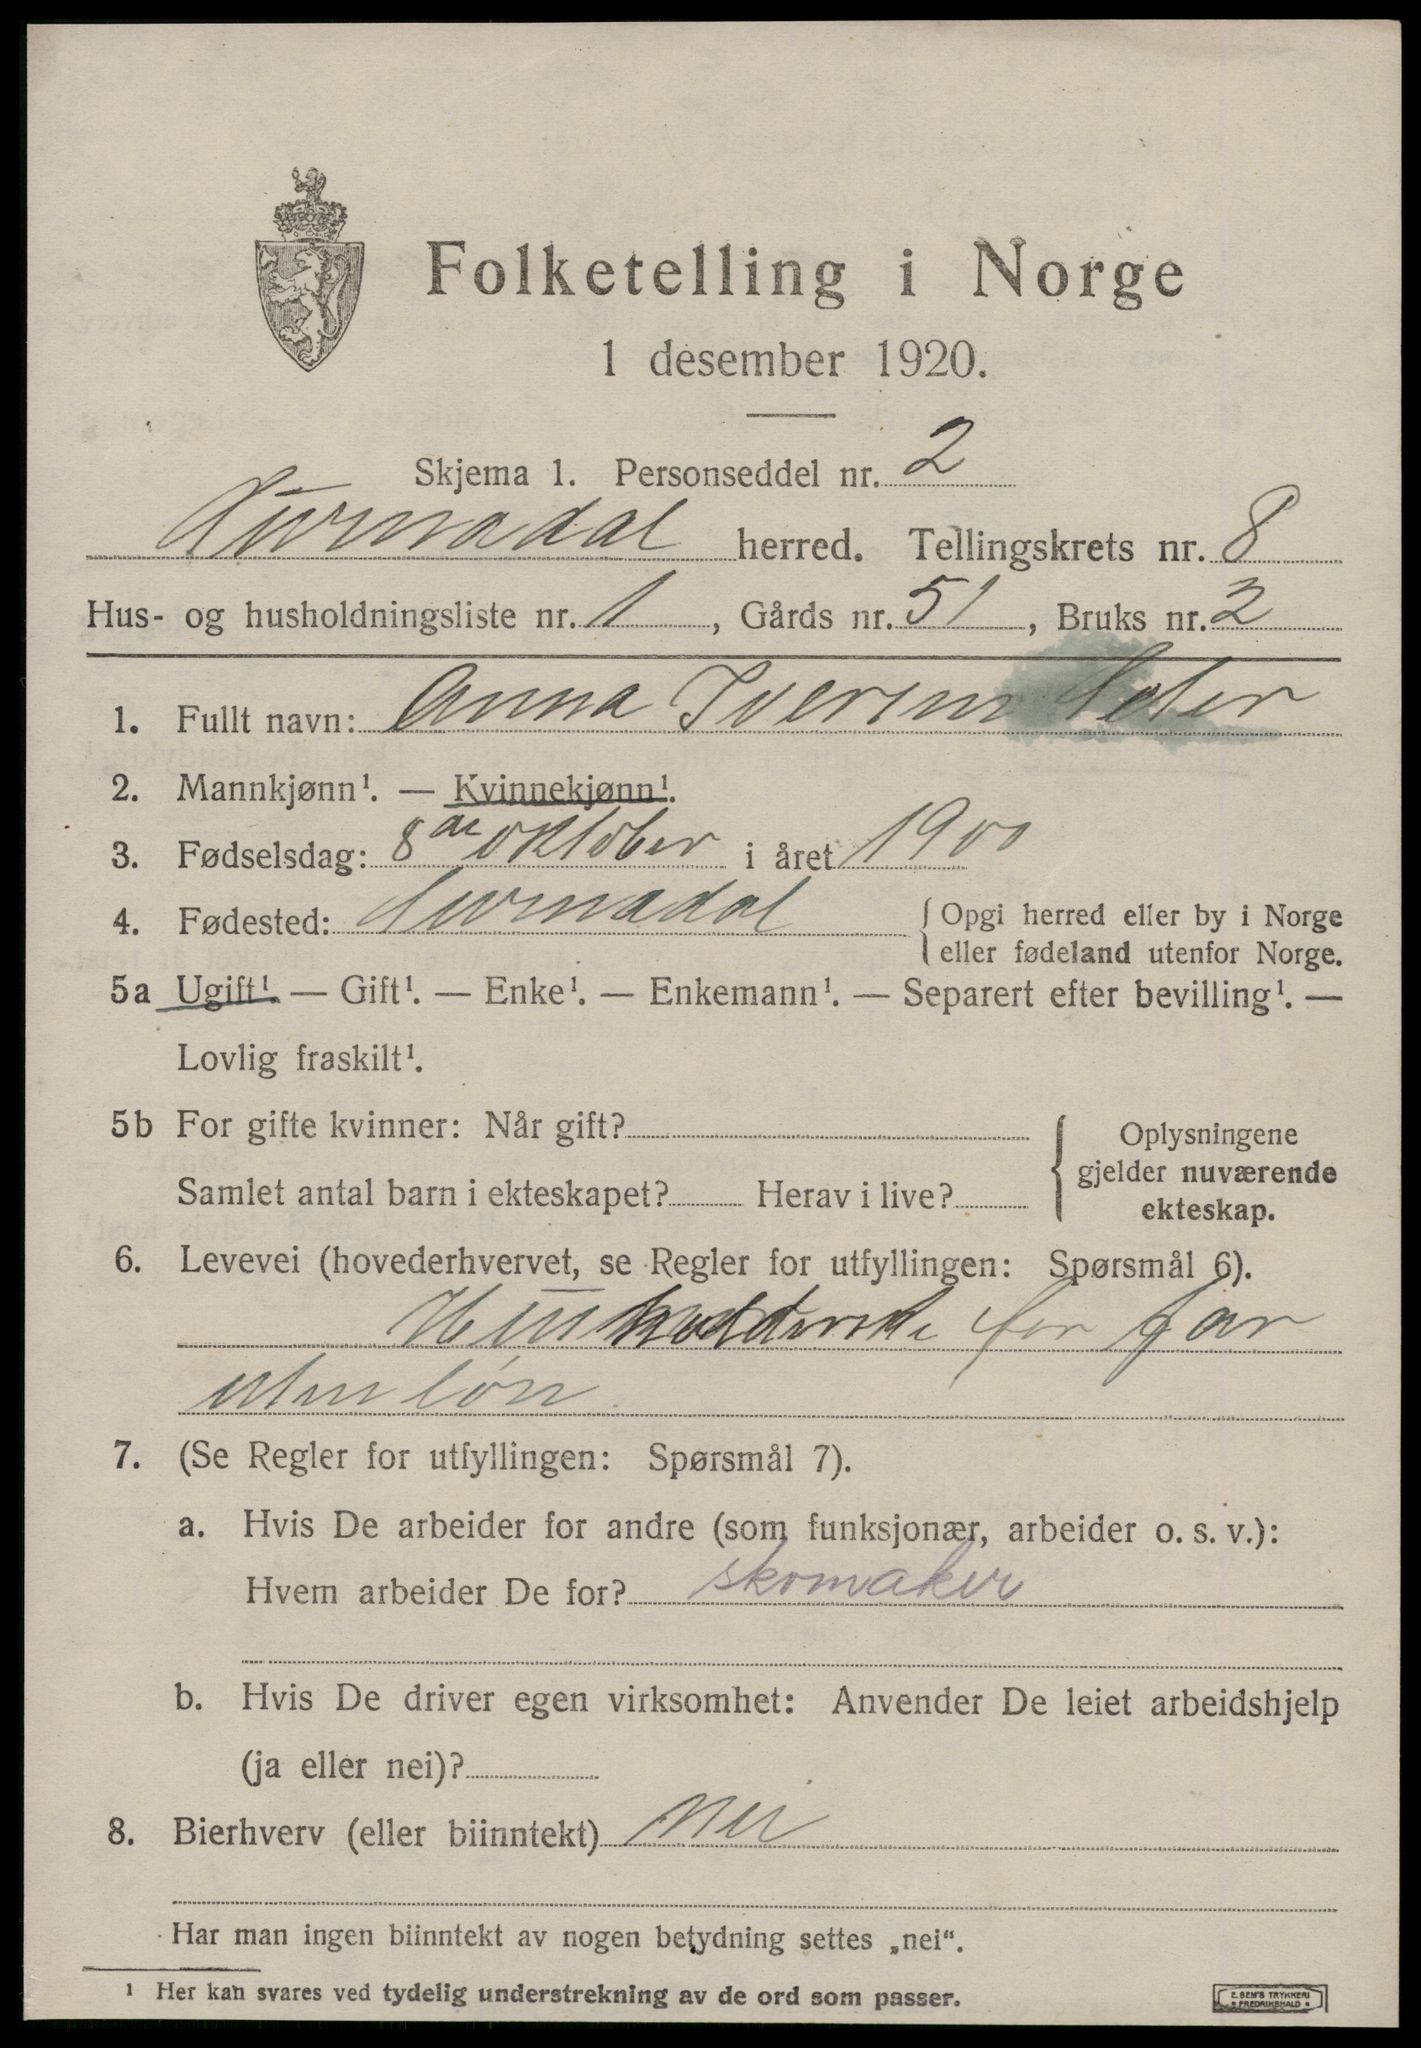 Folketelling i Norge
1 desember 1920.
Skjema 1. Personseddel nr. 2
Surnadal herred. Tellingskrets nr. 8
Hus- og husholdningsliste nr. 1, Gårds nr. 51, Bruks nr. 2
1. Fullt navn: Anna Iversen Seter
2. Mannkjønn¹. — Kvinnekjønn¹.
3. Fødselsdag: 8de oktober i året 1900
4. Fødested: Surnadal { Opgi herred eller by i Norge
eller fødeland utenfor Norge.
5a Ugift¹. — Gift¹. — Enke¹. — Enkemann¹. — Separert efter bevilling¹. —
Lovlig fraskilt¹.
5b For gifte kvinner: Når gift?
Samlet antal barn i ekteskapet? Herav i live?
{ Oplysningene
gjelder nuværende
ekteskap.
6. Levevei (hovederhvervet, se Regler for utfyllingen: Spørsmål 6).
Husholderske for far
uten løn.
7. (Se Regler for utfyllingen: Spørsmål 7).
a. Hvis De arbeider for andre (som funksjonær, arbeider o. s. v.):
Hvem arbeider De for? skomaker
b. Hvis De driver egen virksomhet: Anvender De leiet arbeidshjelp
(ja eller nei)?
8. Bierhverv (eller biinntekt) nei
Har man ingen biinntekt av nogen betydning settes „nei“.
¹ Her kan svares ved tydelig understrekning av de ord som passer.
E. SEM'S TRYKKERI
FREDRIKSHALD